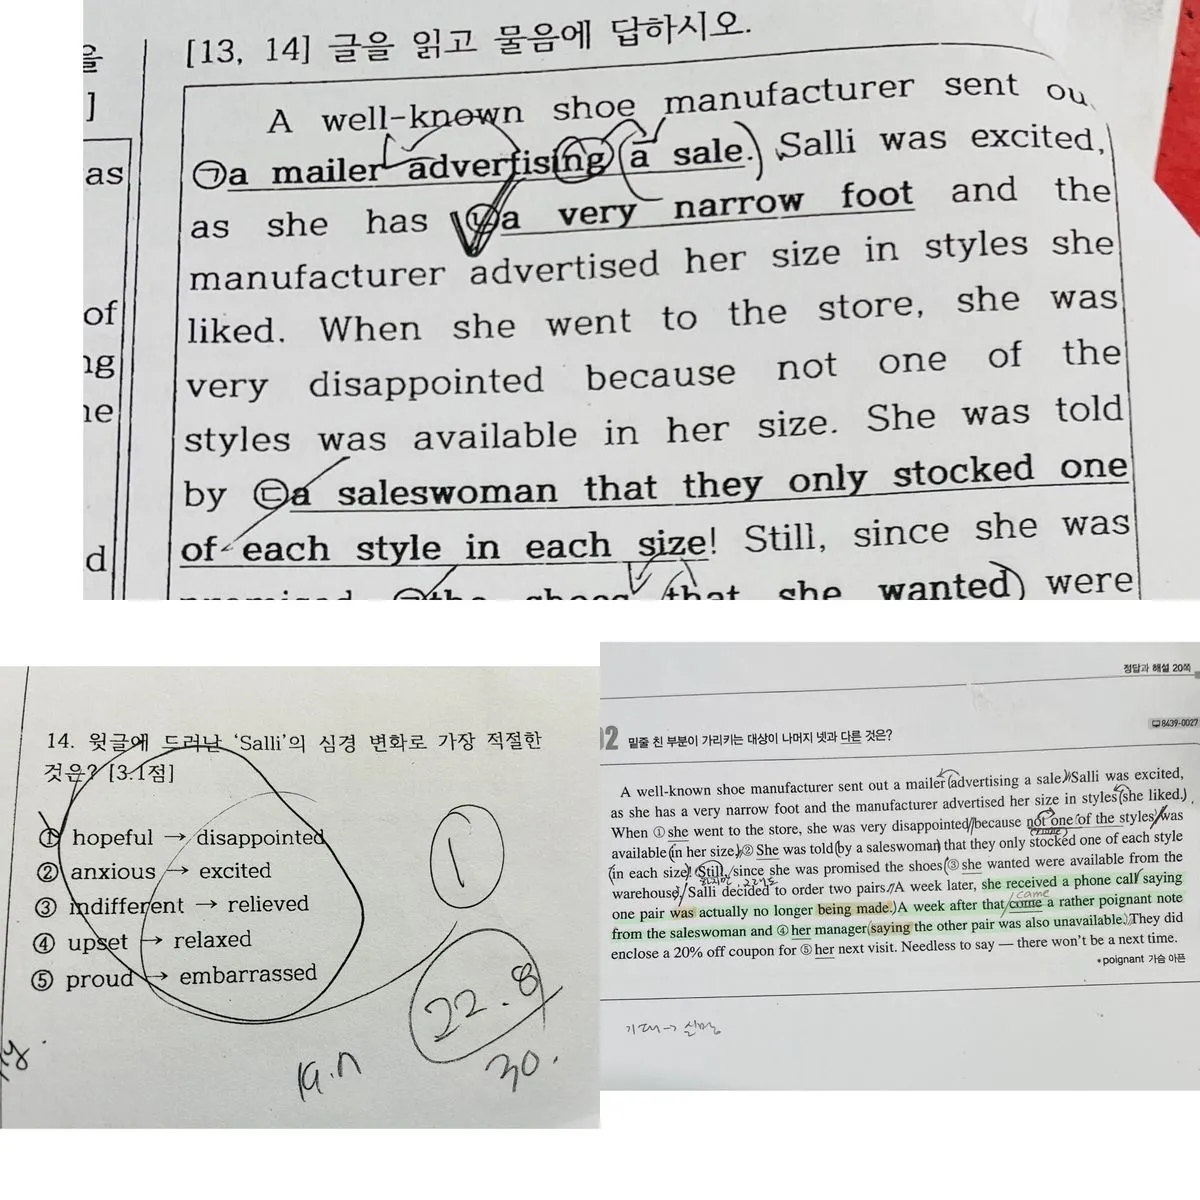 을
]
as
of
ng
ne
d
[13, 14] 글을 읽고 물음에 답하시오.
A well-known shoe manufacturer sent ou
㉠a mailer advertising a sale. Salli was excited,
as she has ㉡a very narrow foot and the
manufacturer advertised her size in styles she
liked. When she went to the store, she was
very disappointed because not one of the
styles was available in her size. She was told
by ㉢a saleswoman that they only stocked one
of each style in each size! Still, since she was
㉣the shoes that she wanted were
14. 윗글에 드러난 'Salli'의 심경 변화로 가장 적절한
것은? [3.1점]
① hopeful → disappointed
② anxious → excited
③ indifferent → relieved
④ upset → relaxed
⑤ proud → embarrassed
1
22.8
30.
정답과 해설 20쪽
8439-0027
02 밑줄 친 부분이 가리키는 대상이 나머지 넷과 다른 것은?
A well-known shoe manufacturer sent out a mailer advertising a sale. Salli was excited,
as she has a very narrow foot and the manufacturer advertised her size in styles she liked.
When ① she went to the store, she was very disappointed because not one of the styles was
available in her size. ② She was told by a saleswoman that they only stocked one of each style
in each size! Still, since she was promised the shoes ③ she wanted were available from the
warehouse, Salli decided to order two pairs. A week later, she received a phone call saying
came
one pair was actually no longer being made. A week after that come a rather poignant note
from the saleswoman and ④ her manager saying the other pair was also unavailable. They did
enclose a 20% off coupon for ⑤ her next visit. Needless to say — there won't be a next time.
*poignant 가슴 아픈
기대→실망